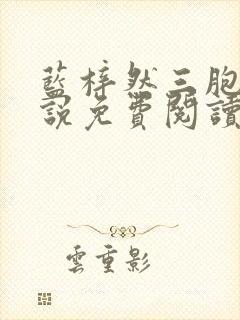 藍梓然三胞
說免費閱讀
雲重影